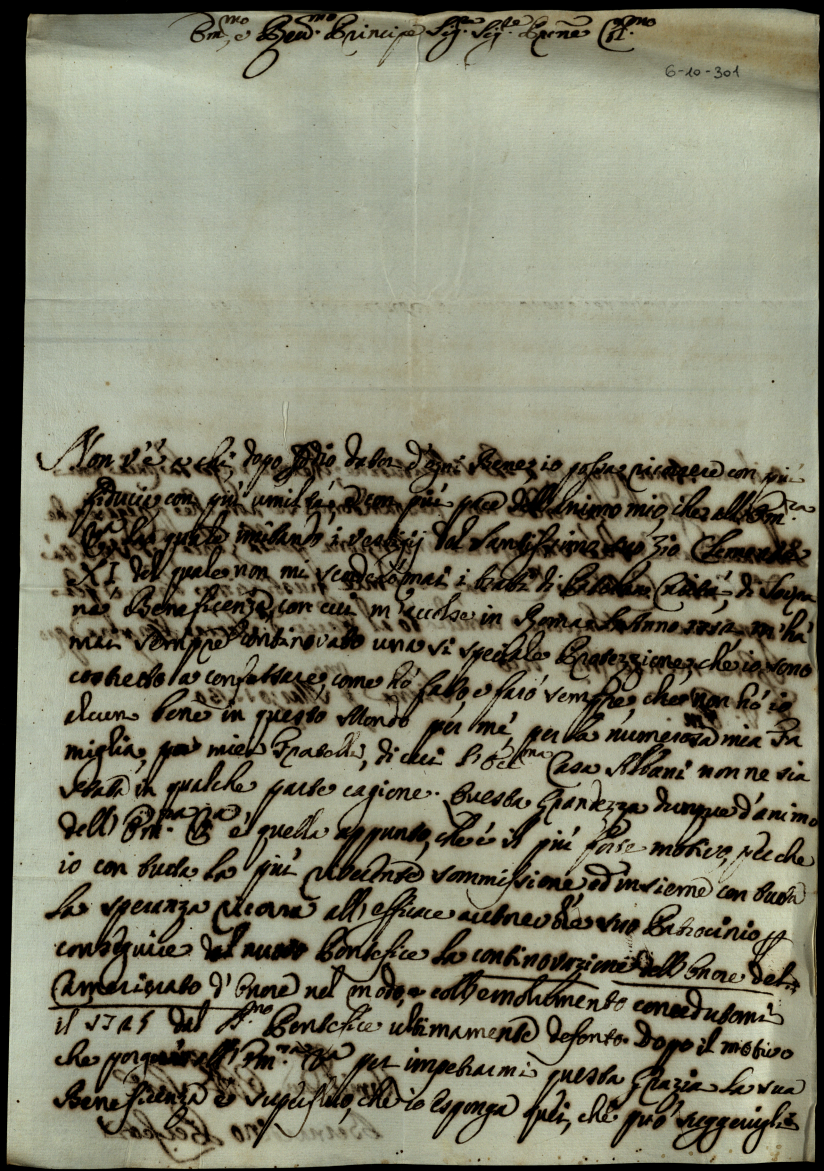 Em.mo e Rev.mo Principe Sig.re Sig.re Prone Col.mo
6-10-301
Non v'è a chi, dopo Iddio dator d'ogni Bene, io possa ricorrere con più
fiducia con più umiltà, e con più pace dell'animo mio, che all'Em.za
V.ra la quale imitando i vestigij del Santissimo suo Zio Clemente
XI del quale non mi scorderò mai i tratti di Carità, di
na Beneficenza, con cui m'accolse in Roma l'Anno m'hà
mai sempre continovato una sì speciale Protezzione, che io sono
costretto a confessare, come hò fatto, e farò sempre, che non hò io
alcun bene in questo Mondo per mè, per la numerosa mia Fa
miglia, per miei Fratelli, di cui l'Ecc.ma Casa Albani non ne sia
stata in qualche parte cagione. Questa Grandezza dunque d'animo
dell'Em.za V.ra è quella appunto, che è il più forte motivo, perche
io con tutta la più riverente sommissione ed insieme con tutta
la speranza ricorra all'efficace autorevole suo Patrocinio p
conseguire dal nuovo Pontefice la continovazione dell'Onore del
Camerierato d'Onore nel modo, e coll'emolumento concedutomi
il 1725 dal S.mo Pontefice ultimamente defonto. Dopo il motivo
che porge all'Em.za V.ra per impetrarmi questa Grazia la sua
Beneficenza è superfluo, che io esponga quei, che può suggerirgli